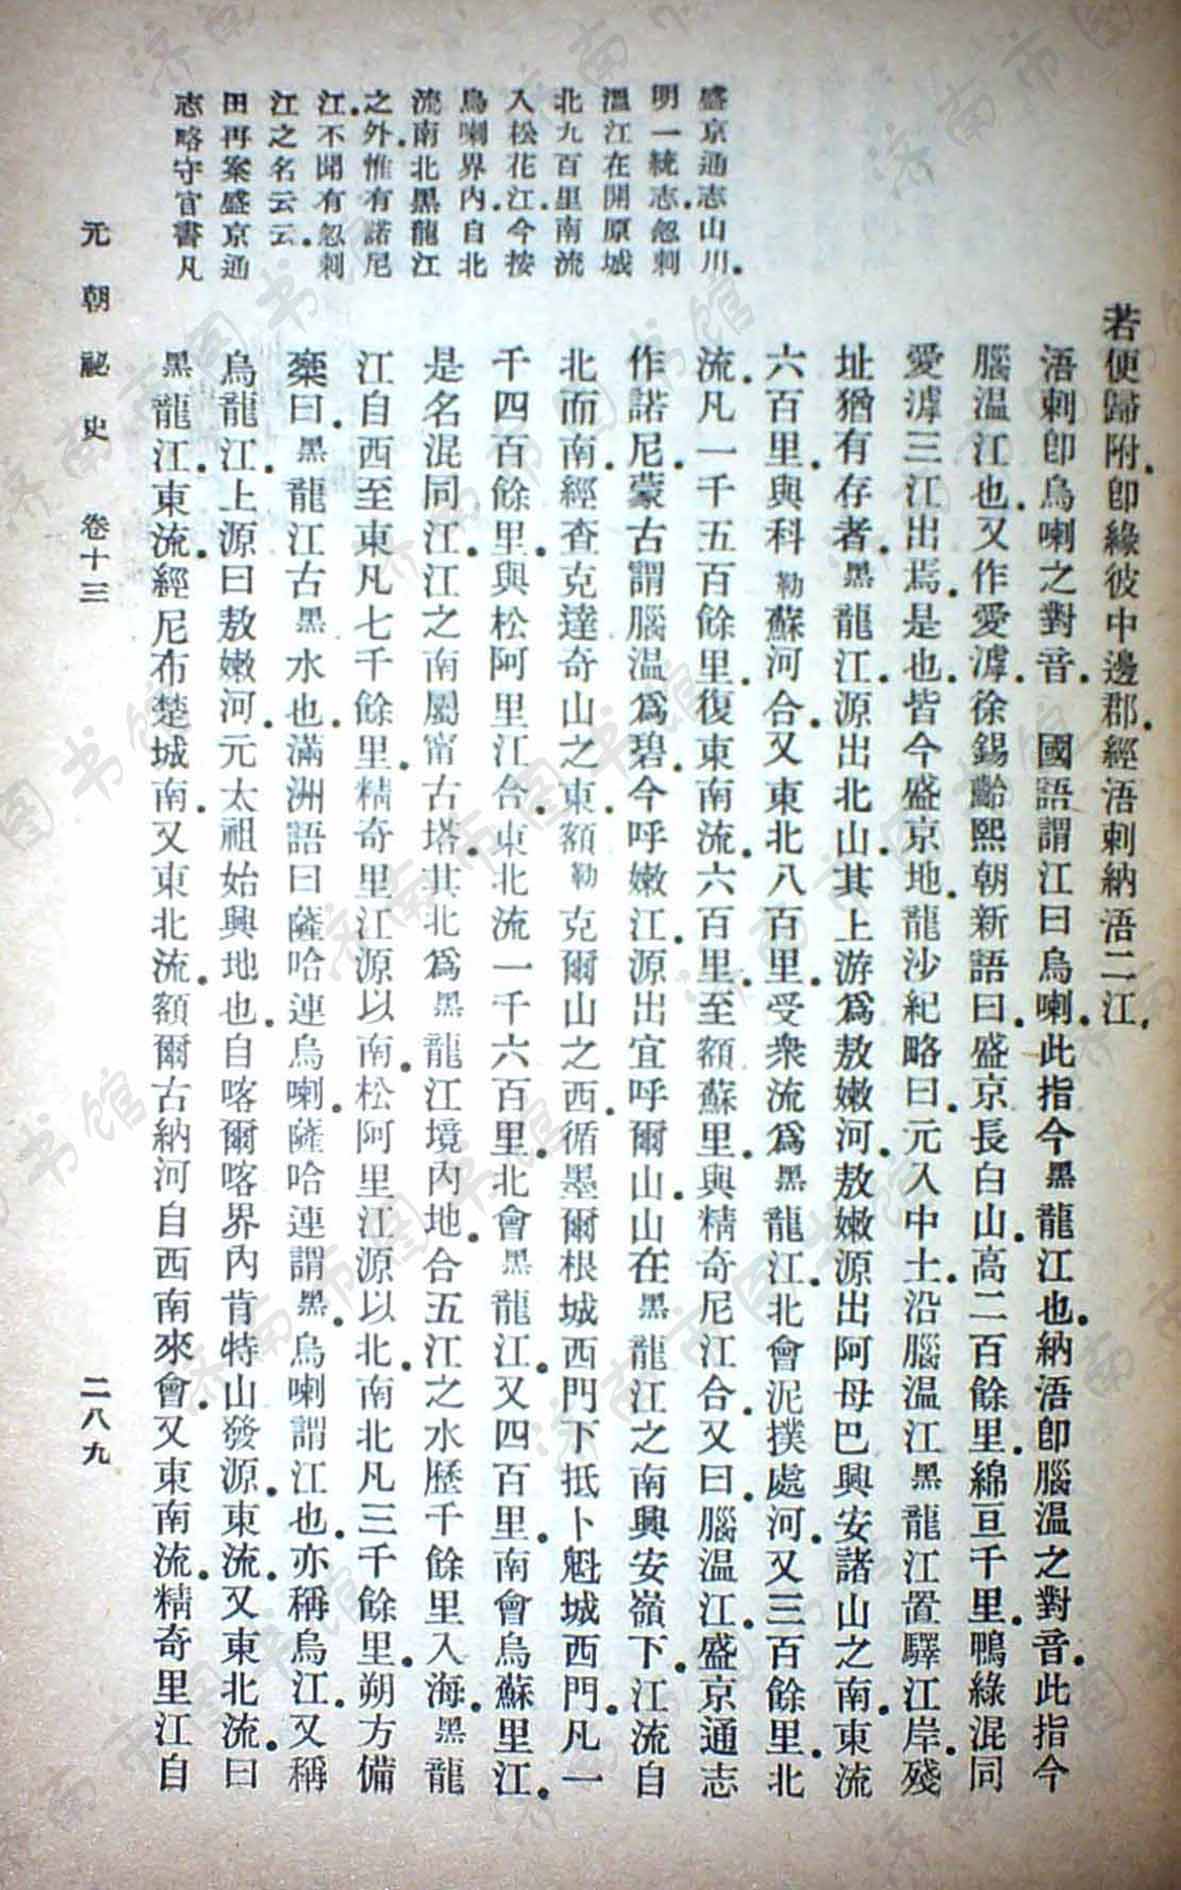 盛京通志山川。
明一統志。忽剌
溫江在開原城
北九百里。南流
入松花江。今按
烏喇界內。自北
流南北黑龍江
之外。惟有諾尼
江。不聞有忽剌
江之名云云。
田再案盛京通
志略守官書凡
若便歸附。卽緣彼中邊郡。經浯剌納浯二江。
浯剌卽烏喇之對音。國語謂江曰烏喇。此指今黑龍江也。納浯卽腦溫之對音。此指今
腦溫江也。又作愛滹。徐錫齡熙朝新語曰。盛京長白山。高二百餘里。綿亘千里。鴨綠混同
愛滹三江出焉。是也。皆今盛京地。龍沙紀略曰。元入中土。沿腦溫江黑龍江置驛。江岸殘
址猶有存者。黑龍江。源出北山。其上游爲敖嫩河。敖嫩源出阿母巴興安諸山之南。東流
六百里。與科勒蘇河合。又東北八百里。受衆流爲黑龍江。北會泥撲處河。又三百餘里。北
流。凡一千五百餘里。復東南流。六百里。至額蘇里。與精奇尼江合。又曰。腦溫江。盛京通志
作諾尼。蒙古謂腦溫爲碧。今呼嫩江。源出宜呼爾山。山在黑龍江之南興安嶺下。江流自
北而南。經查克達奇山之東。額勒克爾山之西。循墨爾根城西門下抵卜魁城西門。凡一
千四百餘里。與松阿里江合。東北流一千六百里。北會黑龍江。又四百里。南會烏蘇里江。
是名混同江。江之南屬甯古塔。其北爲黑龍江境內地。合五江之水歷千餘里入海。黑龍
江自西至東凡七千餘里。精奇里江源以南。松阿里江源以北。南北凡三千餘里。朔方備
椉曰。黑龍江古黑水也。滿洲語曰薩哈連烏喇。薩哈連謂黑。烏喇謂江也。亦稱烏江。又稱
烏龍江。上源曰敖嫩河。元太祖始興地也。自喀爾喀界內肯特山發源。東流。又東北流。曰
黑龍江。東流。經尼布楚城南。又東北流。額爾古納河自西南來會。又東南流。精奇里江自
元朝祕史 卷十三 二八九